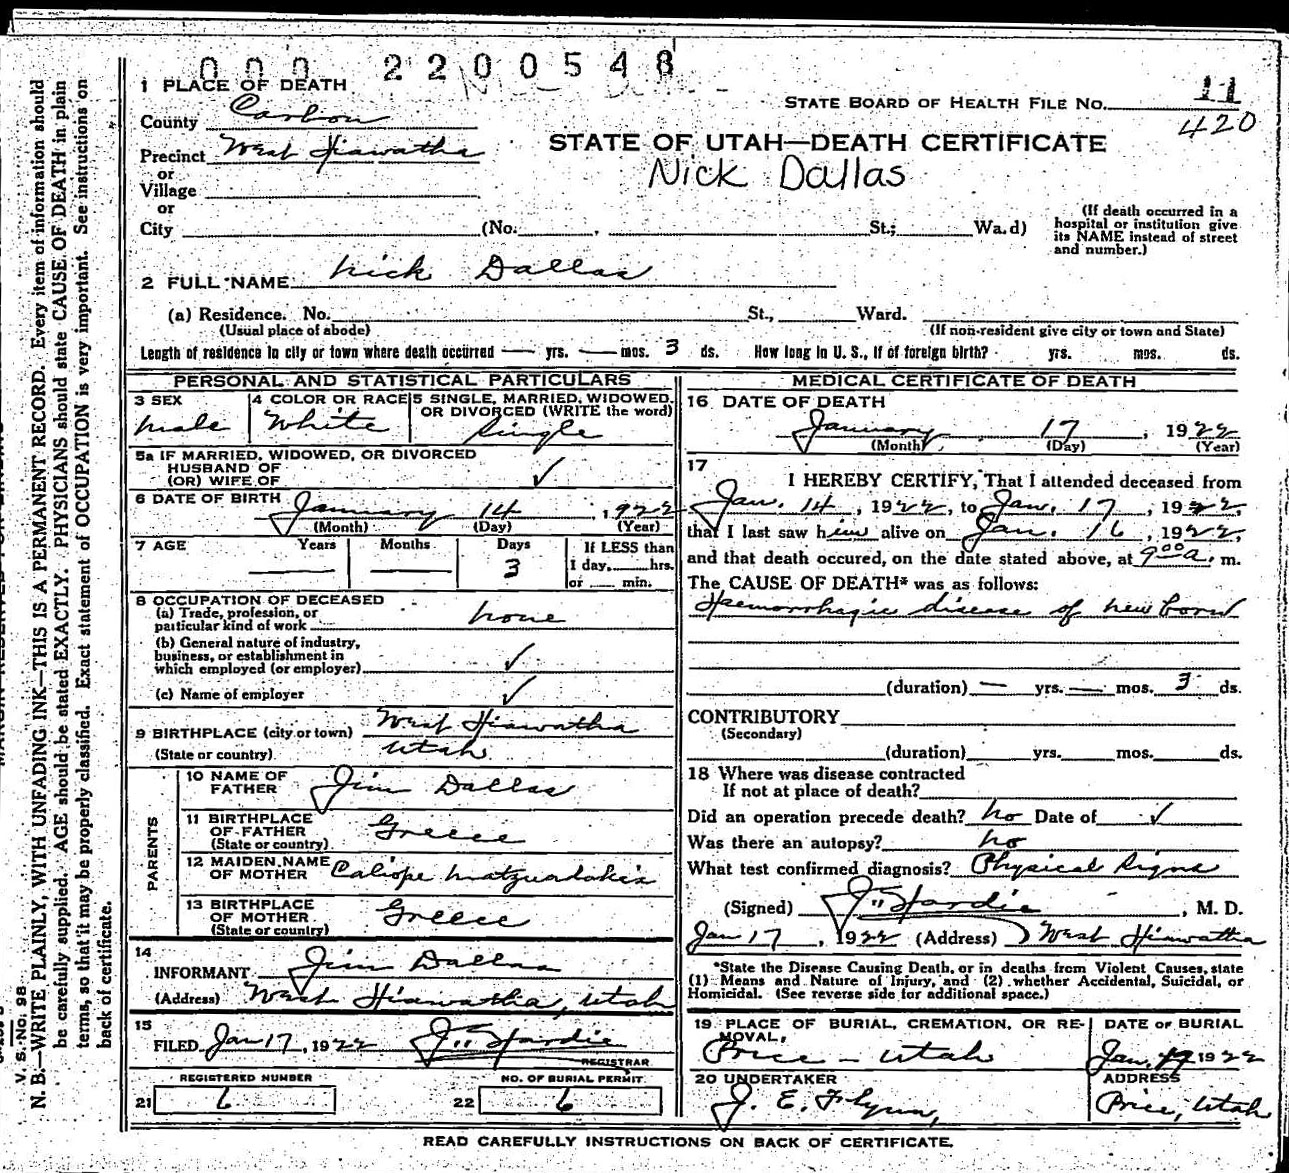 000 2200548
1 PLACE OF DEATH
STATE BOARD OF HEALTH FILE NO. 11
420
County Carbon
STATE OF UTAH—DEATH CERTIFICATE
Precinct West Hiawatha
Nick Dallas
or
Village
or
City (No. , St.; Wa.d)
(If death occurred in a
hospital or institution give
its NAME instead of street
and number.)
2 FULL NAME Nick Dallas
(a) Residence. No. St., Ward.
(Usual place of abode) (If non-resident give city or town and State)
Length of residence in city or town where death occurred — yrs. — mos. 3 ds. How long in U. S., if of foreign birth? yrs. mos. ds.
PERSONAL AND STATISTICAL PARTICULARS
3 SEX 4 COLOR OR RACE 5 SINGLE, MARRIED, WIDOWED,
OR DIVORCED (WRITE the word)
Male White Single
5a IF MARRIED, WIDOWED, OR DIVORCED
HUSBAND OF
(OR) WIFE OF ✓
6 DATE OF BIRTH January 14, 1922
(Month) (Day) (Year)
7 AGE Years Months Days If LESS than
— — 3 1 day, hrs.
or min.
8 OCCUPATION OF DECEASED
(a) Trade, profession, or
particular kind of work none
(b) General nature of industry,
business, or establishment in
which employed (or employer) ✓
(c) Name of employer ✓
9 BIRTHPLACE (city or town) West Hiawatha
(State or country) Utah
PARENTS
10 NAME OF
FATHER Jim Dallas
11 BIRTHPLACE
OF FATHER Greece
(State or country)
12 MAIDEN NAME
OF MOTHER Caliope
13 BIRTHPLACE
OF MOTHER Greece
(State or country)
14
INFORMANT Jim Dallas
(Address) West Hiawatha, Utah
15
FILED Jan 17, 1922 Hardie
REGISTRAR
REGISTERED NUMBER NO. OF BURIAL PERMIT
21 6 22 6
MEDICAL CERTIFICATE OF DEATH
16 DATE OF DEATH
January 17, 1922
(Month) (Day) (Year)
17
I HEREBY CERTIFY, That I attended deceased from
Jan. 14, 1922, to Jan. 17, 1922,
that I last saw him alive on Jan. 16, 1922,
and that death occured, on the date stated above, at 9 00 a. m.
The CAUSE OF DEATH* was as follows:
Haemorrhagic disease of new born
(duration) — yrs. — mos. 3 ds.
CONTRIBUTORY
(Secondary)
(duration) yrs. mos. ds.
18 Where was disease contracted
If not at place of death?
Did an operation precede death? no Date of ✓
Was there an autopsy? no
What test confirmed diagnosis? Physical Signs
(Signed) Hardie, M. D.
Jan 17, 1922 (Address) West Hiawatha
*State the Disease Causing Death, or in deaths from Violent Causes, state
(1) Means and Nature of Injury, and (2) whether Accidental, Suicidal, or
Homicidal. (See reverse side for additional space.)
19 PLACE OF BURIAL, CREMATION, OR RE-
MOVAL, DATE OF BURIAL
Price - Utah Jan. 1922
20 UNDERTAKER ADDRESS
J. E. Flynn, Price, Utah
READ CAREFULLY INSTRUCTIONS ON BACK OF CERTIFICATE.
V. S. No. 98
N. B.—WRITE PLAINLY, WITH UNFADING INK—THIS IS A PERMANENT RECORD. Every item of information should
be carefully supplied. AGE should be stated EXACTLY. PHYSICIANS should state CAUSE OF DEATH in plain
terms, so that it may be properly classified. Exact statement of OCCUPATION is very important. See instructions on
back of certificate.